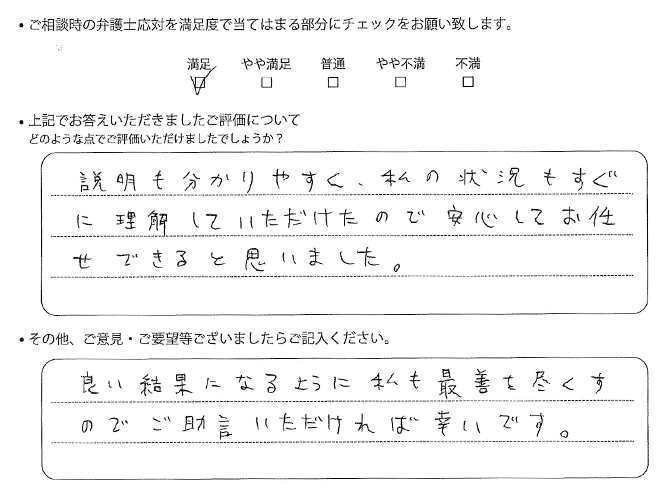 ・ご相談時の弁護士応対を満足度で当てはまる部分にチェックをお願い致します。
満足 やや満足 普通 やや不満 不満
☑ □ □ □ □
・上記でお答えいただきましたご評価について
どのような点でご評価いただけましたでしょうか？
説明も分かりやすく、私の状況もすぐ
に理解していただけたので安心してお任
せできると思いました。
・その他、ご意見・ご要望等ございましたらご記入ください。
良い結果になるように私も最善を尽くす
のでご助言いただければ幸いです。